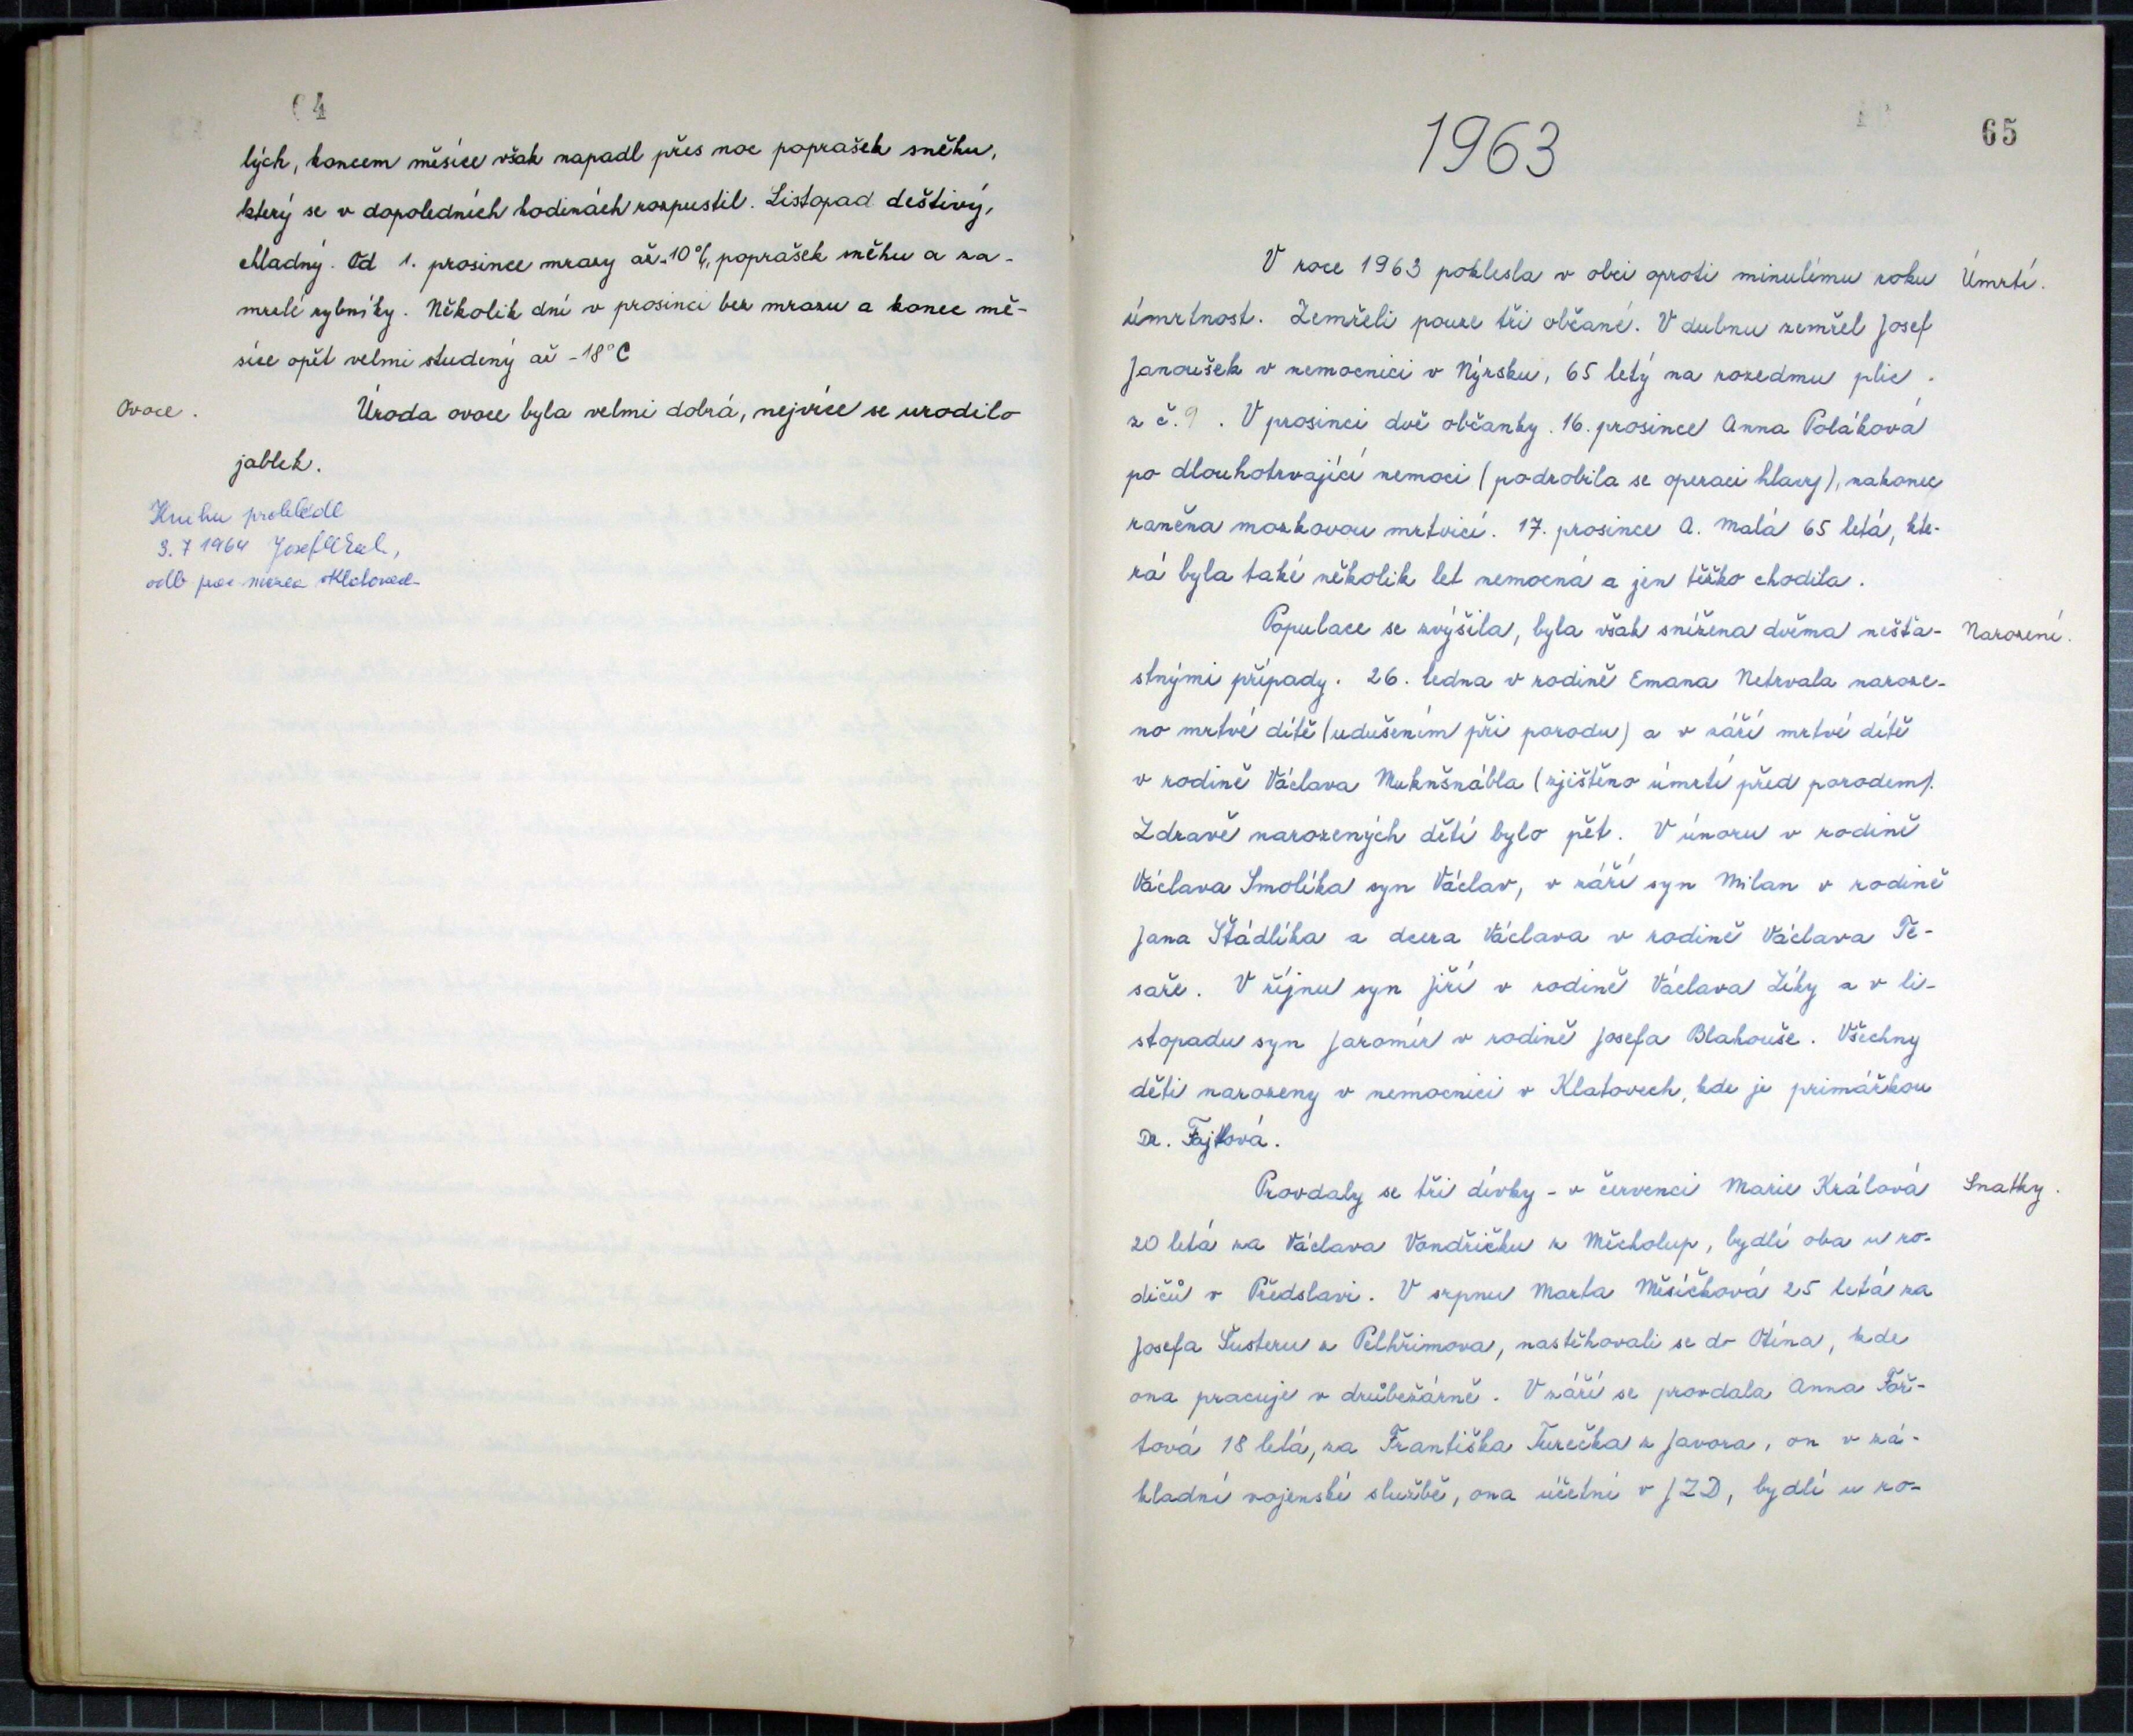 64
lých, koncem měsíce však napadl přes noc poprašek sněhu,
který se v dopoledních hodinách rozpustil. Listopad deštivý,
chladný. Od 1. prosince mrazy až -10%, poprašek sněhu a za-
mrzlé rybníky. Několik dní v prosinci bez mrazu a konec mě-
síce opět velmi studený až -18°C
Ovoce.
Úroda ovoce byla velmi dobrá, nejvíce se urodilo
jablek.
Knihu prohlédl
3. 7 1964 Josef
odb
65
1963
V roce 1963 poklesla v obci oproti minulému roku
Úmrtí.
úmrtnost. Zemřeli pouze tři občané. V dubnu zemřel Josef
Janoušek v nemocnici v Nýrsku, 65 letý na rozedmu plic.
z č. 9. V prosinci dvě občanky. 16. prosince Anna Poláková
po dlouhotrvající nemoci (podrobila se operaci hlavy), nakonec
raněna mozkovou mrtvicí. 17. prosince A. Malá 65 letá, kte-
rá byla také několik let nemocná a jen těžko chodila.
Populace se zvýšila, byla však snížena dvěma nešťa-
Narození.
stnými případy. 26. ledna v rodině Emana Netrvala naroze-
no mrtvé dítě (udušením při porodu) a v září mrtvé dítě
v rodině Václava Muknšnábla (zjištěno úmrtí před porodem).
Zdravě narozených dětí bylo pět. V únoru v rodině
Václava Smolíka syn Václav, v září syn Milan v rodině
Jana Štádlíka a dcera Václava v rodině Václava Te-
saře. V říjnu syn Jiří v rodině Václava Zíky a v li-
stopadu syn Jaromír v rodině Josefa Blahouše. Všechny
děti narozeny v nemocnici v Klatovech, kde je primářkou
Dr. Fajtlová.
Provdaly se tři dívky - v červenci Marie Králová
Snatky.
20 letá za Václava Vondřičku z Měcholup, bydlí oba u ro-
dičů v Předslavi. V srpnu Marta Měsíčková 25 letá za
Josefa Šusteru z Pelhřimova, nastěhovali se do Otína, kde
ona pracuje v drůbežárně. V září se provdala Anna Foř-
tová 18 letá, za Františka Turečka z Javora, on v zá-
kladní vojenské službě, ona účetní v JZD, bydlí u ro-